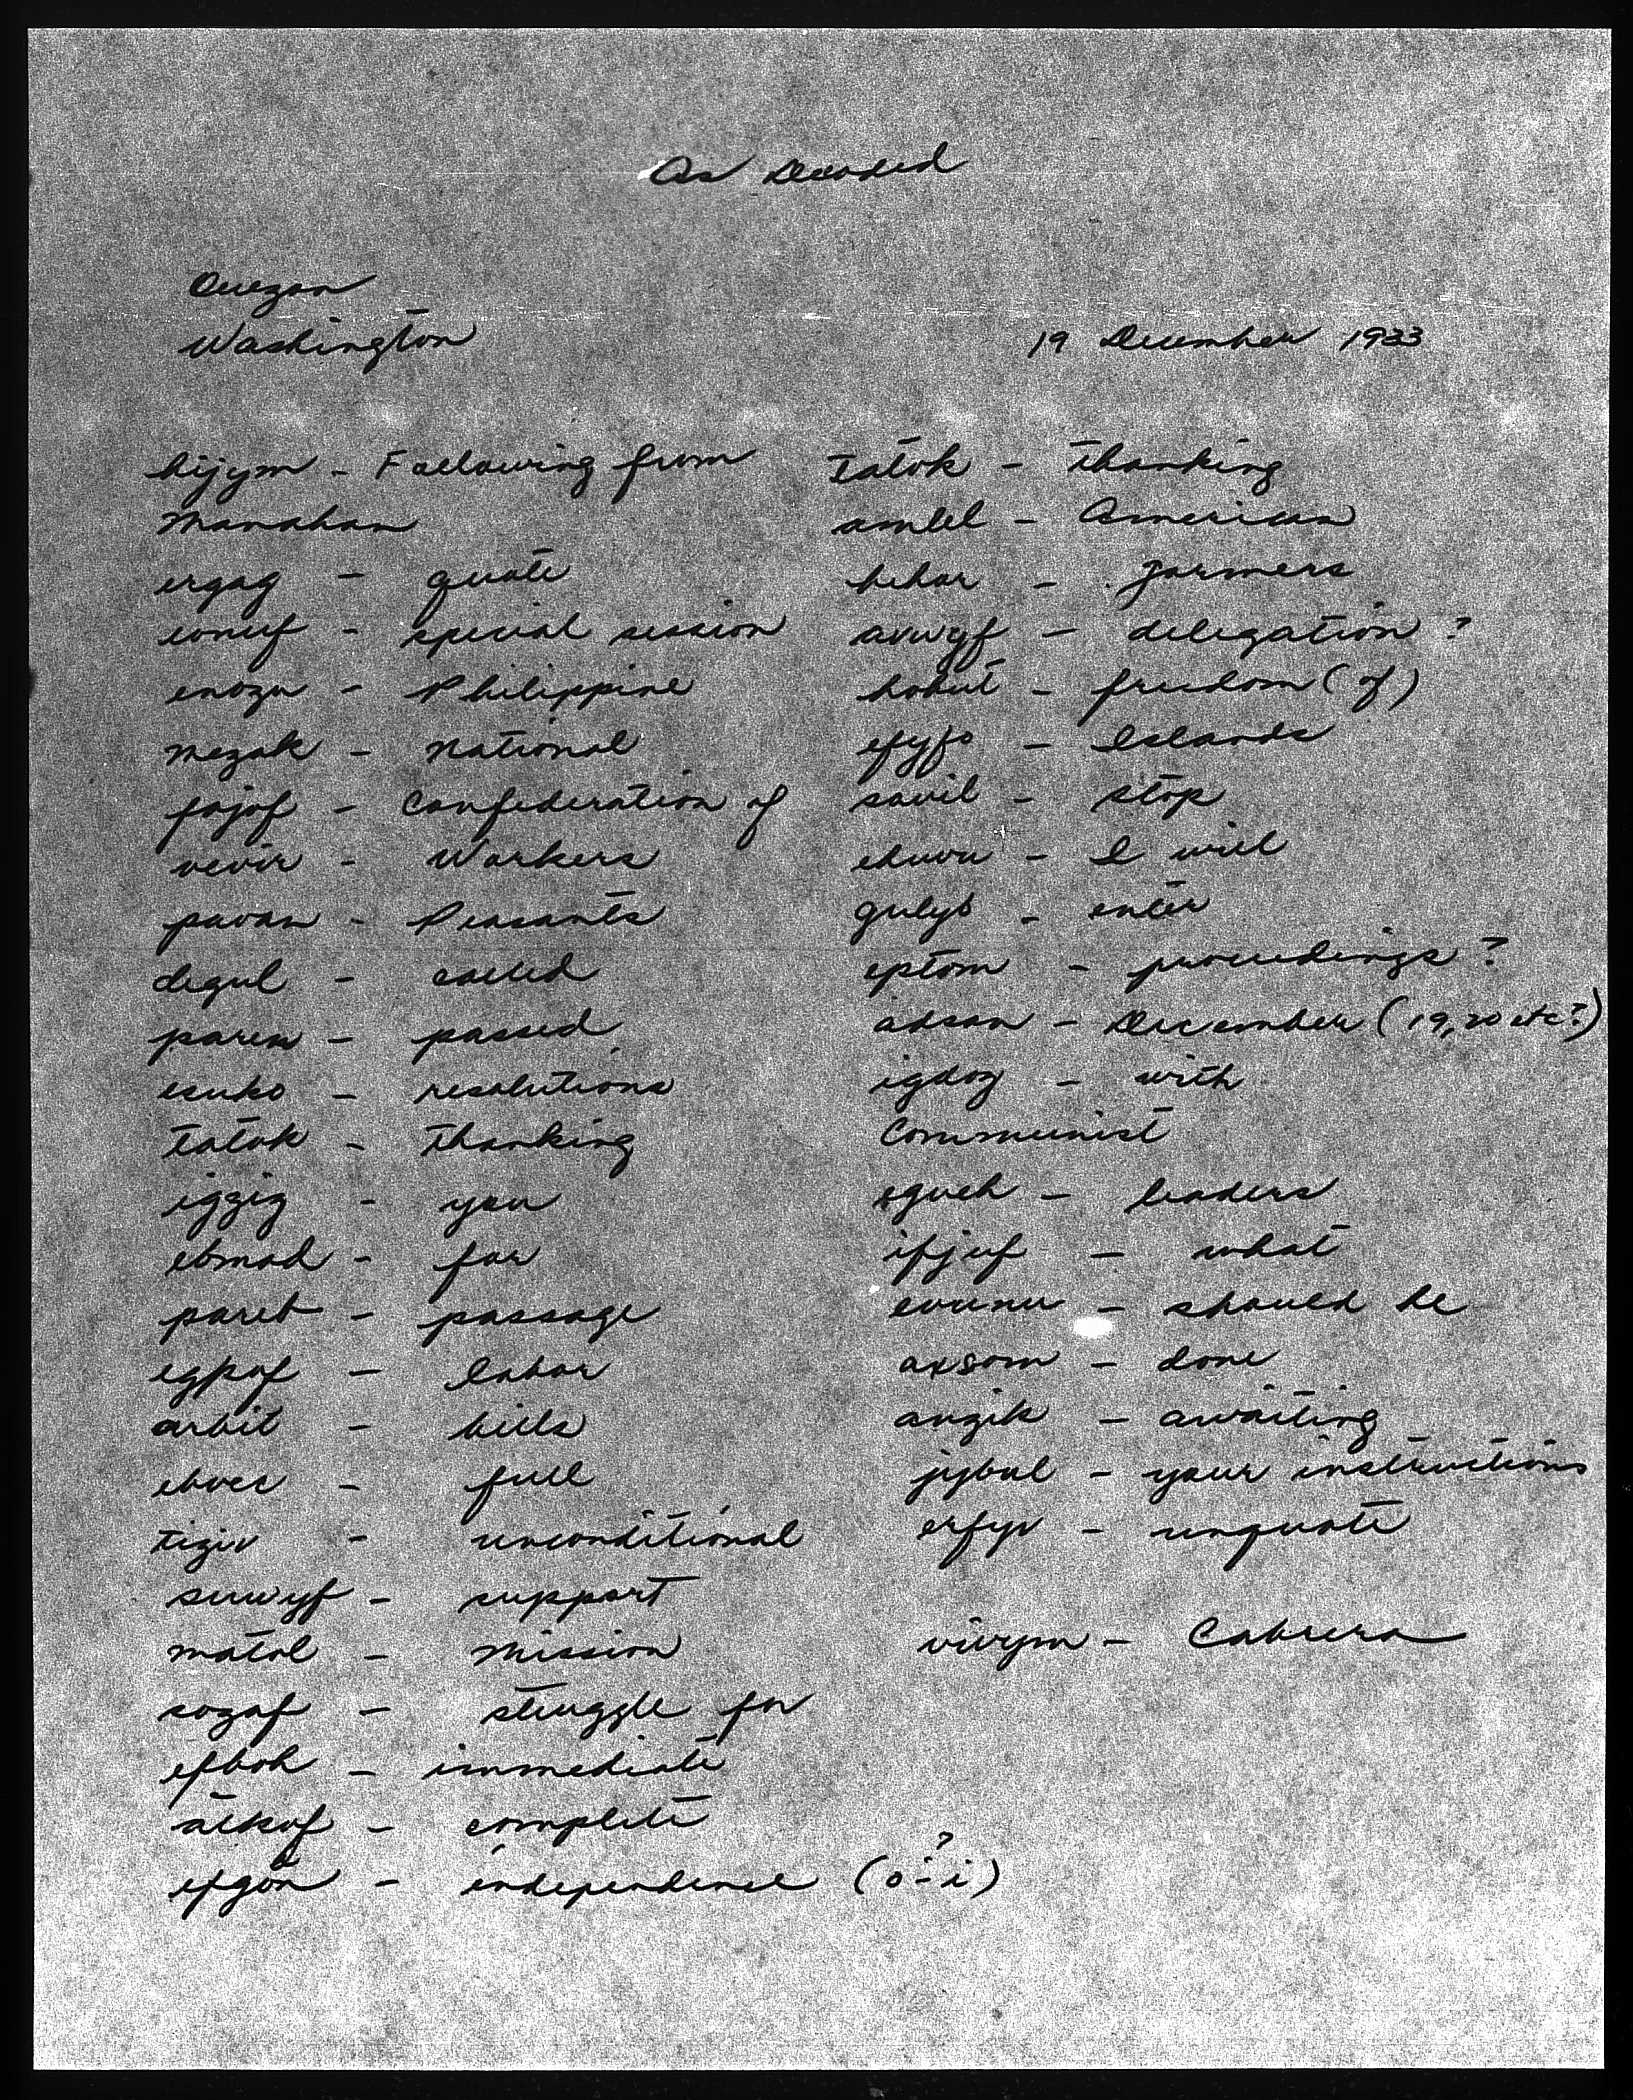 As Decoded
Quezon
Washington
19 December 1933
hijym - Following from
Manahan
ergag - quote
special session
enozu - Philippine
mezak - National
pojof - Confederation of
vevir - Workers
pavan - Peasants
degul - called
parem - passed
esuko - resolutions
tatok - thanking
igzig - you
ebmad - for
paret - passage
egpof - labor
arbit - bills
full
tigiv - unconditional
suwyf - support
matol - Mission
sozaf - struggle for
efboh - immediate
complete
efgon - independence (o-i) ?
tatok - thanking
amlel - American
behar - farmers
avwyf - delegation ?
hobut - freedom (of)
efyfo - Islands
savil - stop
eduvu - I will
gulyb - enter
eptom - proceedings ?
adsan - December (19, 20 etc?)
igdoz - with
Communist
egueh - leaders
ifjuf - what
should be
axsom - done
avzik - awaiting
jybul - your instructions
erfyv - unquote
vivym - Cabrera